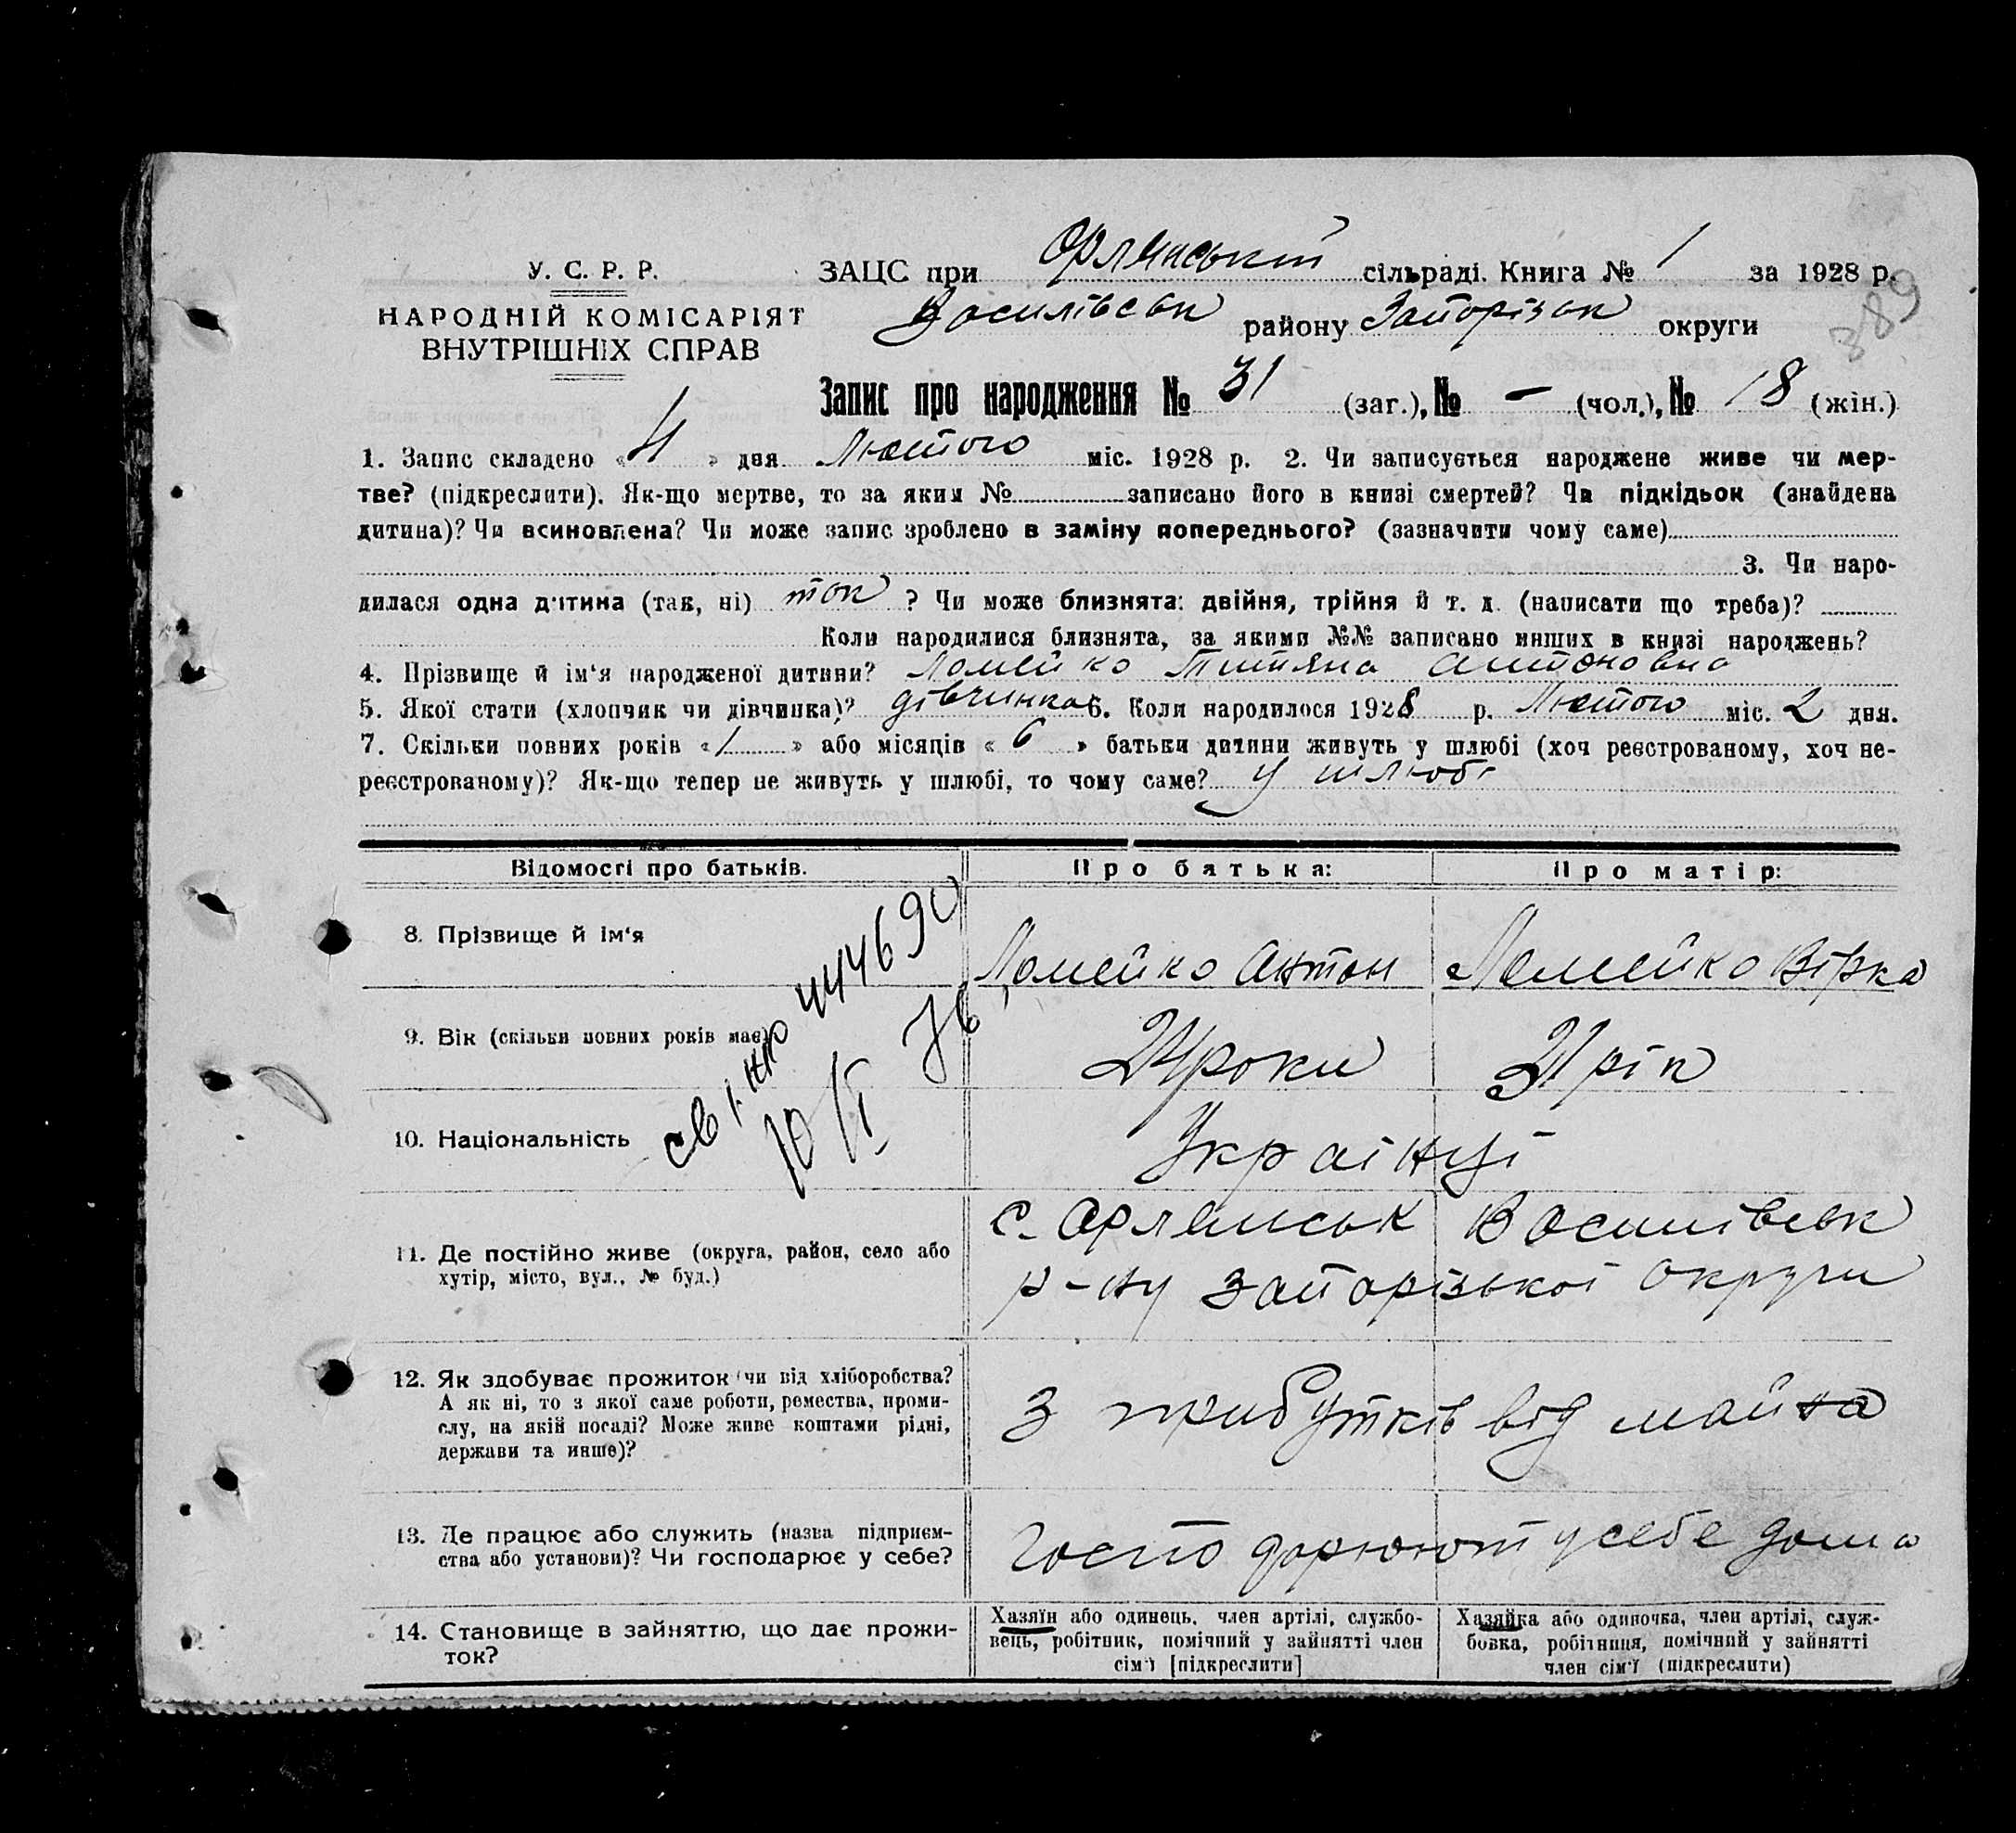 У. С. Р. Р.
НАРОДНІЙ КОМІСАРІЯТ
ВНУТРІШНІХ СПРАВ
ЗАЦС при Орлянській сільраді. Книга № 1 за 1928 р.
Василівськ району Запорізьк округи
389
Запис про народження № 31 (заг.), № – (чол.), № 18 (жін.)
1. Запис складено « 4 » дня Лютого міс. 1928 р. 2. Чи записується народжене живе чи мер-
тве? (підкреслити). Як-що мертве, то за яким № записано його в книзі смертей? Чи підкідьок (знайдена
дитина)? Чи всиновлена? Чи може запис зроблено в заміну попереднього? (зазначити чому саме)
3. Чи наро-
дилася одна дитина (так, ні) так ? Чи може близнята: двійня, трійня й т. д. (написати що треба)?
Коли народилися близнята, за якими №№ записано инших в книзі народжень?
4. Прізвище й ім'я народженої дитини? Ломейко Титяна Антоновна
5. Якої стати (хлопчик чи дівчинка)? дівчинка 6. Коли народилося 1928 р. Лютого міс. 2 дня.
7. Скільки повних років « 1 » або місяців « 6 » батьки дитини живуть у шлюбі (хоч реєстрованому, хоч не-
реєстрованому)? Як-що тепер не живуть у шлюбі, то чому саме? у шлюбі
Відомості про батьків.
Про батька:
Про матір:
8. Прізвище й ім'я
Ломейко Антон
Ломейко Вірка
9. Вік (скільки повних років має)
24 роки
21 рік
10. Національність
Українці
св 444690
11. Де постійно живе (округа, район, село або
хутір, місто, вул., № буд.)
с. Орлянськ Василівськ
р-ну Запорізької округи
12. Як здобуває прожиток (чи від хліборобства?
А як ні, то з якої саме роботи, ремества, проми-
слу, на якій посаді? Може живе коштами рідні,
держави та инше)?
З прибутків від майна
13. Де працює або служить (назва підприєм-
ства або установи)? Чи господарює у себе?
Господорюють у себе дома
14. Становище в зайняттю, що дає прожи-
ток?
Хазяїн або одинець, член артілі, службо-
вець, робітник, помічний у зайнятті член
сім'ї [підкреслити]
Хазяйка або одиночка, член артілі, служ-
бовка, робітниця, помічний у зайнятті
член сім'ї (підкреслити)